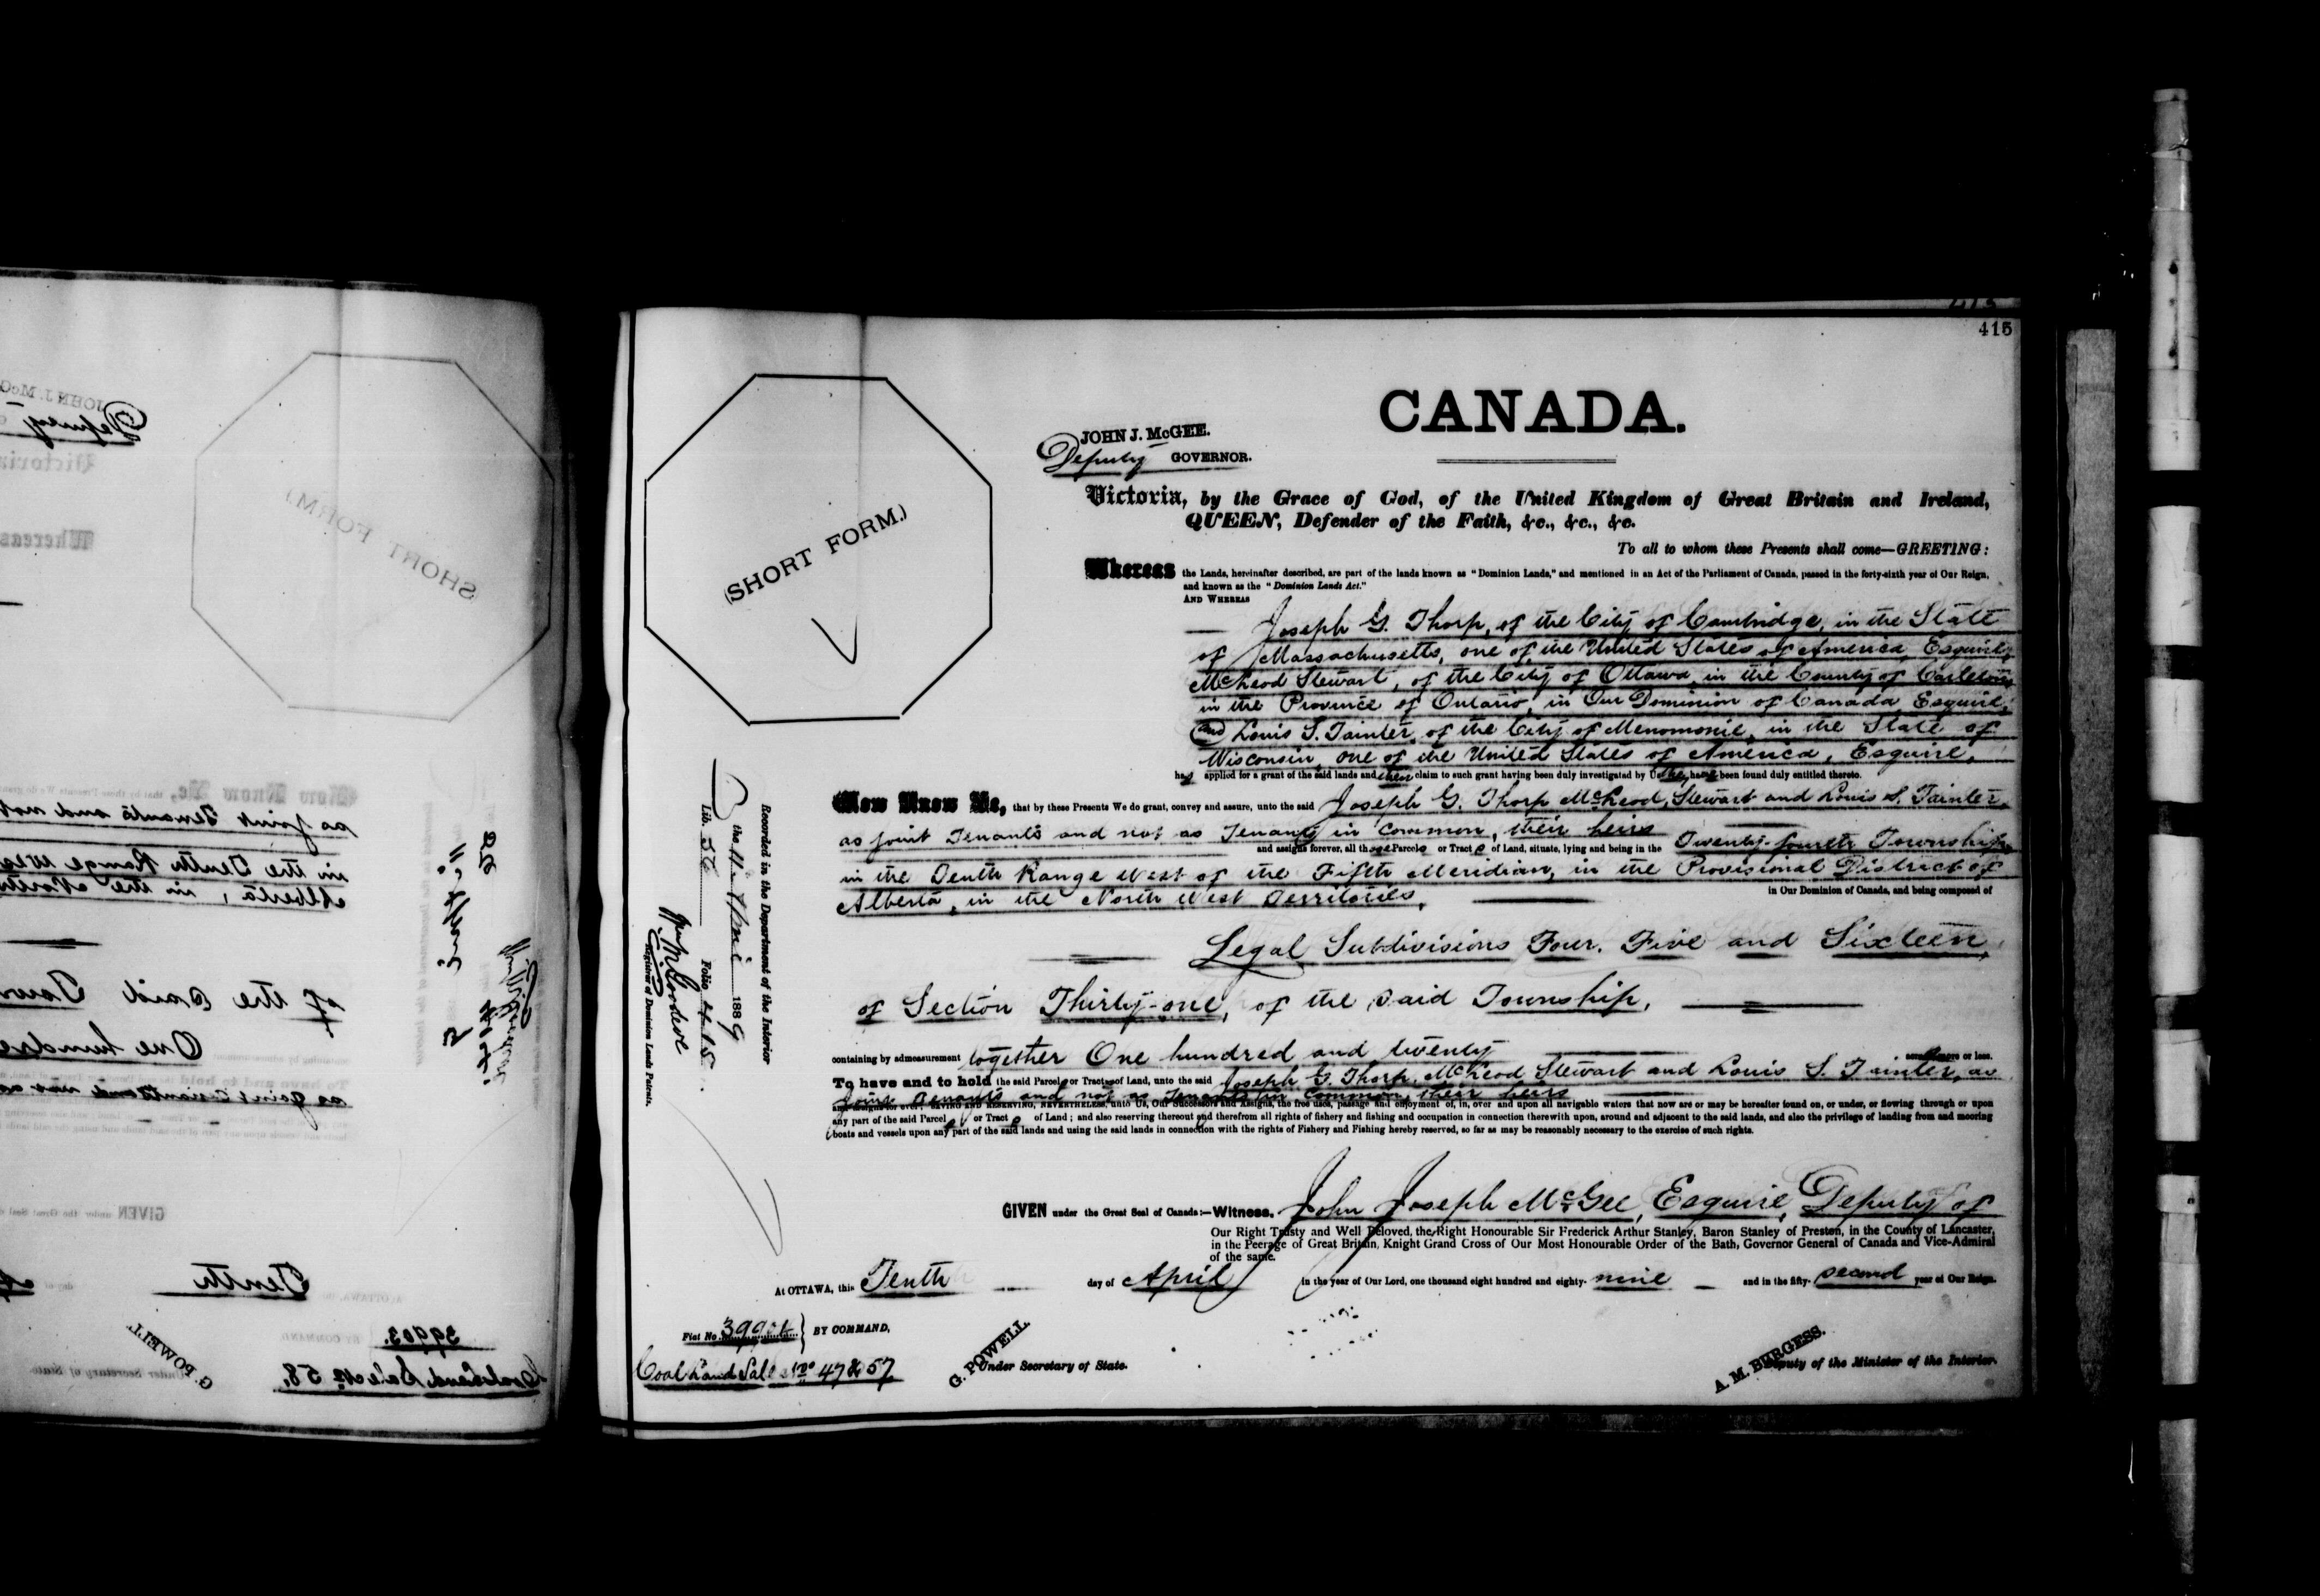 415
CANADA.
JOHN J. McGEE.
Deputy GOVERNOR.
(SHORT FORM.)
Victoria, by the Grace of God, of the United Kingdom of Great Britain and Ireland,
QUEEN, Defender of the Faith, &c., &c., &c.
To all to whom these Presents shall come—GREETING:
Whereas the Lands, hereinafter described, are part of the lands known as "Dominion Lands," and mentioned in an Act of the Parliament of Canada, passed in the forty-sixth year of Our Reign,
and known as the "Dominion Lands Act."
AND WHEREAS
Joseph G. Thorp, of the City of Cambridge, in the State
of Massachusetts, one of the United States of America, Esquire,
McLeod Stewart, of the City of Ottawa, in the County of Carleton,
in the Province of Ontario, in Our Dominion of Canada, Esquire,
and Louis S. Tainter, of the City of Menomonie, in the State of
Wisconsin, one of the United States of America, Esquire,
applied for a grant of the said lands and their claim to such grant having been duly investigated by Us, been found duly entitled thereto.
Now Know Ye, that by these Presents We do grant, convey and assure, unto the said Joseph G. Thorp McLeod, Stewart and Louis S. Tainter,
as joint Tenants and not as Tenants in Common, their heirs
and assigns forever, all those Parcels or Tracts of Land, situate, lying and being in the Twenty-fourth Township,
in the Tenth Range West of the Fifth Meridian, in the Provisional District of
Alberta, in the North West Territories, in Our Dominion of Canada, and being composed of
Legal Subdivisions Four, Five and Sixteen,
of Section Thirty-one, of the said Township,
containing by admeasurement together One hundred and twenty acres more or less.
To have and to hold the said Parcels or Tracts of Land, unto the said Joseph G. Thorp, McLeod Stewart and Louis S. Tainter, as
joint Tenants and not as Tenants in Common, their heirs
and assigns for ever; SAVING AND RESERVING, NEVERTHELESS, unto Us, Our Successors and Assigns, the free uses, passage and enjoyment of, in, over and upon all navigable waters that now are or may be hereafter found on, or under, or flowing through or upon
any part of the said Parcel or Tract of Land; and also reserving thereout and therefrom all rights of fishery and fishing and occupation in connection therewith upon, around and adjacent to the said lands, and also the privilege of landing from and mooring
boats and vessels upon any part of the said lands and using the said lands in connection with the rights of Fishery and Fishing hereby reserved, so far as may be reasonably necessary to the exercise of such rights.
GIVEN under the Great Seal of Canada:—Witness, John Joseph McGee, Esquire, Deputy of
Our Right Trusty and Well Beloved, the Right Honourable Sir Frederick Arthur Stanley, Baron Stanley of Preston, in the County of Lancaster,
in the Peerage of Great Britain, Knight Grand Cross of Our Most Honourable Order of the Bath, Governor General of Canada and Vice-Admiral
of the same.
At OTTAWA, this Tenth day of April in the year of Our Lord, one thousand eight hundred and eighty-nine and in the fifty-second year of Our Reign.
Fiat No. BY COMMAND,
Coal Land Sales Nos 47 & 57
G. POWELL,
Under Secretary of State.
A. M. BURGESS.
Deputy of the Minister of the Interior.
Recorded in the Department of the Interior
the 11th April 1889
Lib. 36 Folio 415
Registrar of Dominion Lands Patents.